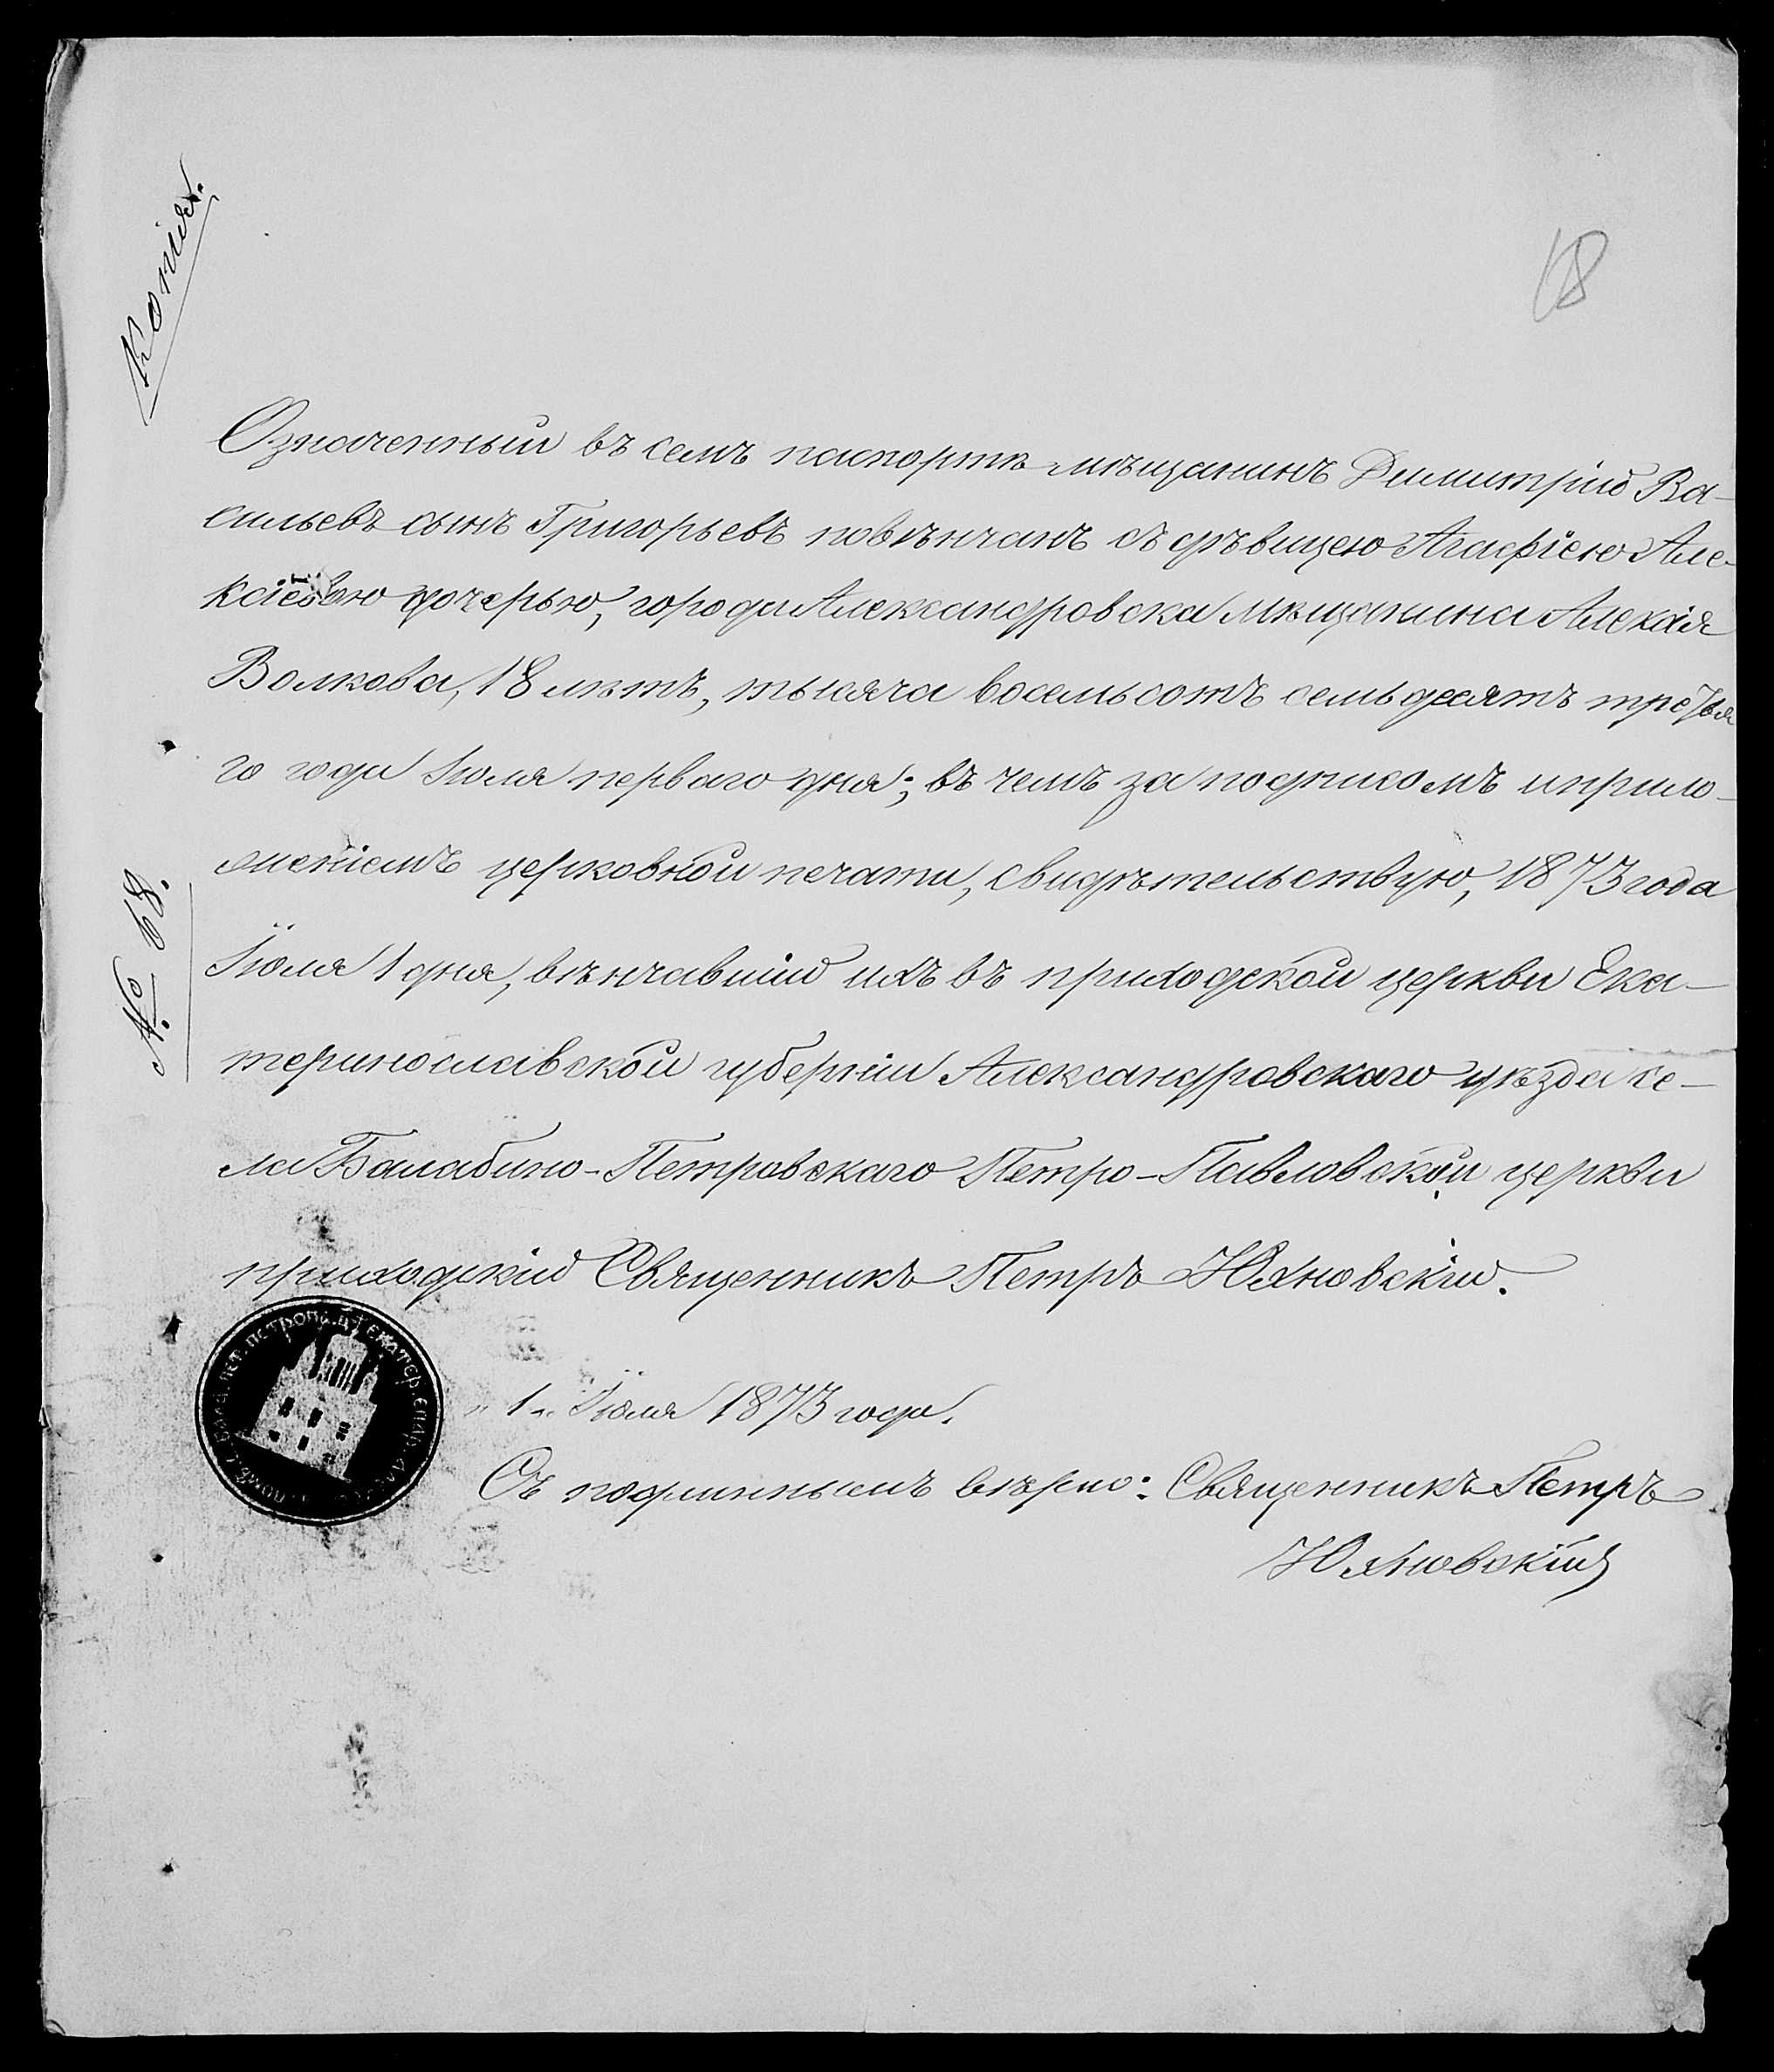 Копія.
18
Означенный въ семъ паспортѣ мѣщанинъ Димитрій Ва-
сильевъ сынъ Григорьевъ повѣнчанъ съ дѣвицею Агафіею Але-
ксіевою дочерью, города Александровска мѣщанина Алексія
Волкова, 18 лѣтъ, тысяча восемьсотъ семьдесятъ третья
го года Іюля перваго дня; въ чемъ за подписомъ и прило-
женіемъ церковной печати, свидѣтельствую, 1873 года
Іюля 1 дня, вѣнчавшій ихъ въ приходской церкви Ека-
теринославской губерніи Александровскаго уѣзда се-
ла Балабино-Петровскаго Петро-Павловской церкви
приходскій Священникъ Петръ Юхновскій.
№ 68.
„1„ Іюля 1873 года.
Съ подлиннымъ вѣрно: Священникъ Петръ
Юхновскій